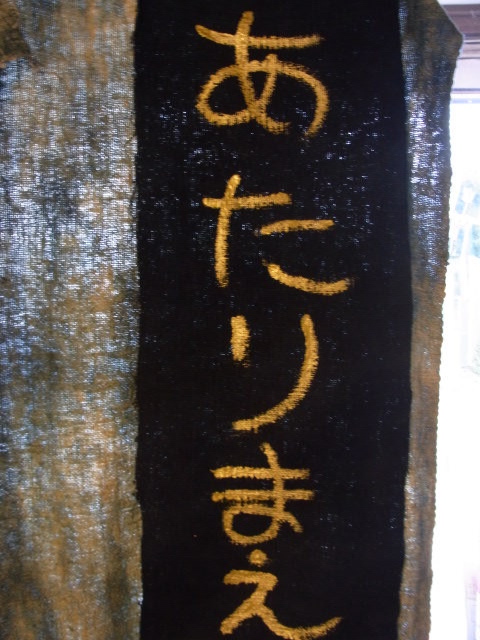 あたりまえ